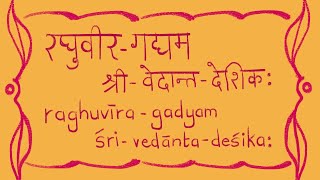 रघुवीर-गद्यम
श्री-वेदान्त-देशिक:
raghuvīra-gadyam
śri-vedānta-deśika: